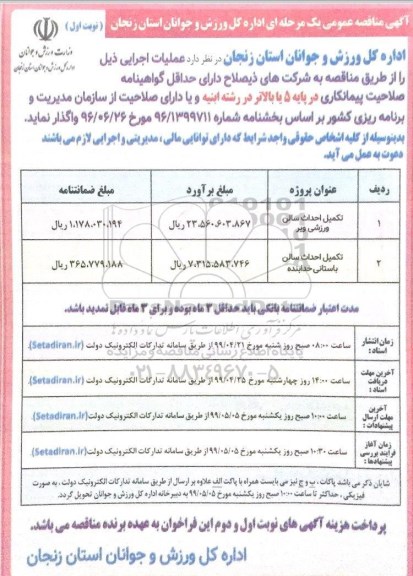 آگهی مناقصه عمومی یک مرحله ای اداره کل ورزش و جوانان استان زنجان (نوبت اول)
وزارت ورزش و جوانان
اداره کل ورزش و جوانان استان زنجان
اداره کل ورزش و جوانان استان زنجان در نظر دارد عملیات اجرایی ذیل
را از طریق مناقصه به شرکت های ذیصلاح دارای حداقل گواهینامه
صلاحیت پیمانکاری در پایه ۵ یا بالاتر در رشته ابنیه و یا دارای صلاحیت از سازمان مدیریت و
برنامه ریزی کشور بر اساس بخشنامه شماره ۹۶/۱۳۹۹۷۱۱ مورخ ۹۶/۰۶/۲۶ واگذار نماید.
بدینوسیله از کلیه اشخاص حقوقی واجد شرایط که دارای توانایی مالی ، مدیریتی و اجرایی لازم می باشند
دعوت به عمل می آید.
ردیف عنوان پروژه مبلغ برآورد مبلغ ضمانتنامه
۱ تکمیل احداث سالن ورزشی ویر ۲۳.۵۶۰.۶۰۳.۸۶۷ ریال ۱.۱۷۸.۰۳۰.۱۹۴ ریال
۲ تکمیل احداث سالن باستانی خدابنده ۷.۳۱۵.۵۸۳.۷۴۶ ریال ۳۶۵.۷۷۹.۱۸۸ ریال
مدت اعتبار ضمانتنامه بانکی باید حداقل ۳ ماه بوده و برای ۳ ماه قابل تمدید باشد.
مرکز فرآوری اطلاعات پارس نماد داده ها
پایگاه اطلاع رسانی مناقصه و مزایده
۰۲۱-۸۸۳۴۹۶۷۰-۵
زمان انتشار اسناد : ساعت ۰۸:۰۰ صبح روز شنبه مورخ ۹۹/۰۴/۲۱ از طریق سامانه تدارکات الکترونیک دولت (Setadiran.ir).
آخرین مهلت دریافت اسناد : ساعت ۱۴:۰۰ روز چهارشنبه مورخ ۹۹/۰۴/۲۵ از طریق سامانه تدارکات الکترونیک دولت (Setadiran.ir).
آخرین مهلت ارسال پیشنهادات : ساعت ۱۰:۰۰ صبح روز یکشنبه مورخ ۹۹/۰۵/۰۵ از طریق سامانه تدارکات الکترونیک دولت (Setadiran.ir).
زمان آغاز فرآیند بررسی پیشنهادها : ساعت ۱۰:۳۰ صبح روز یکشنبه مورخ ۹۹/۰۵/۰۵ از طریق سامانه تدارکات الکترونیک دولت (Setadiran.ir).
شایان ذکر می باشد پاکات ، ب و ج نیز می بایست همراه با پاکت الف علاوه بر ارسال از طریق سامانه تدارکات الکترونیک دولت ، به صورت
فیزیکی ، حداکثر تا ساعت ۱۰:۰۰ صبح روز یکشنبه مورخ ۹۹/۰۵/۰۵ به دبیرخانه اداره کل ورزش و جوانان تحویل گردد.
پرداخت هزینه آگهی های نوبت اول و دوم این فراخوان به عهده برنده مناقصه می باشد.
اداره کل ورزش و جوانان استان زنجان